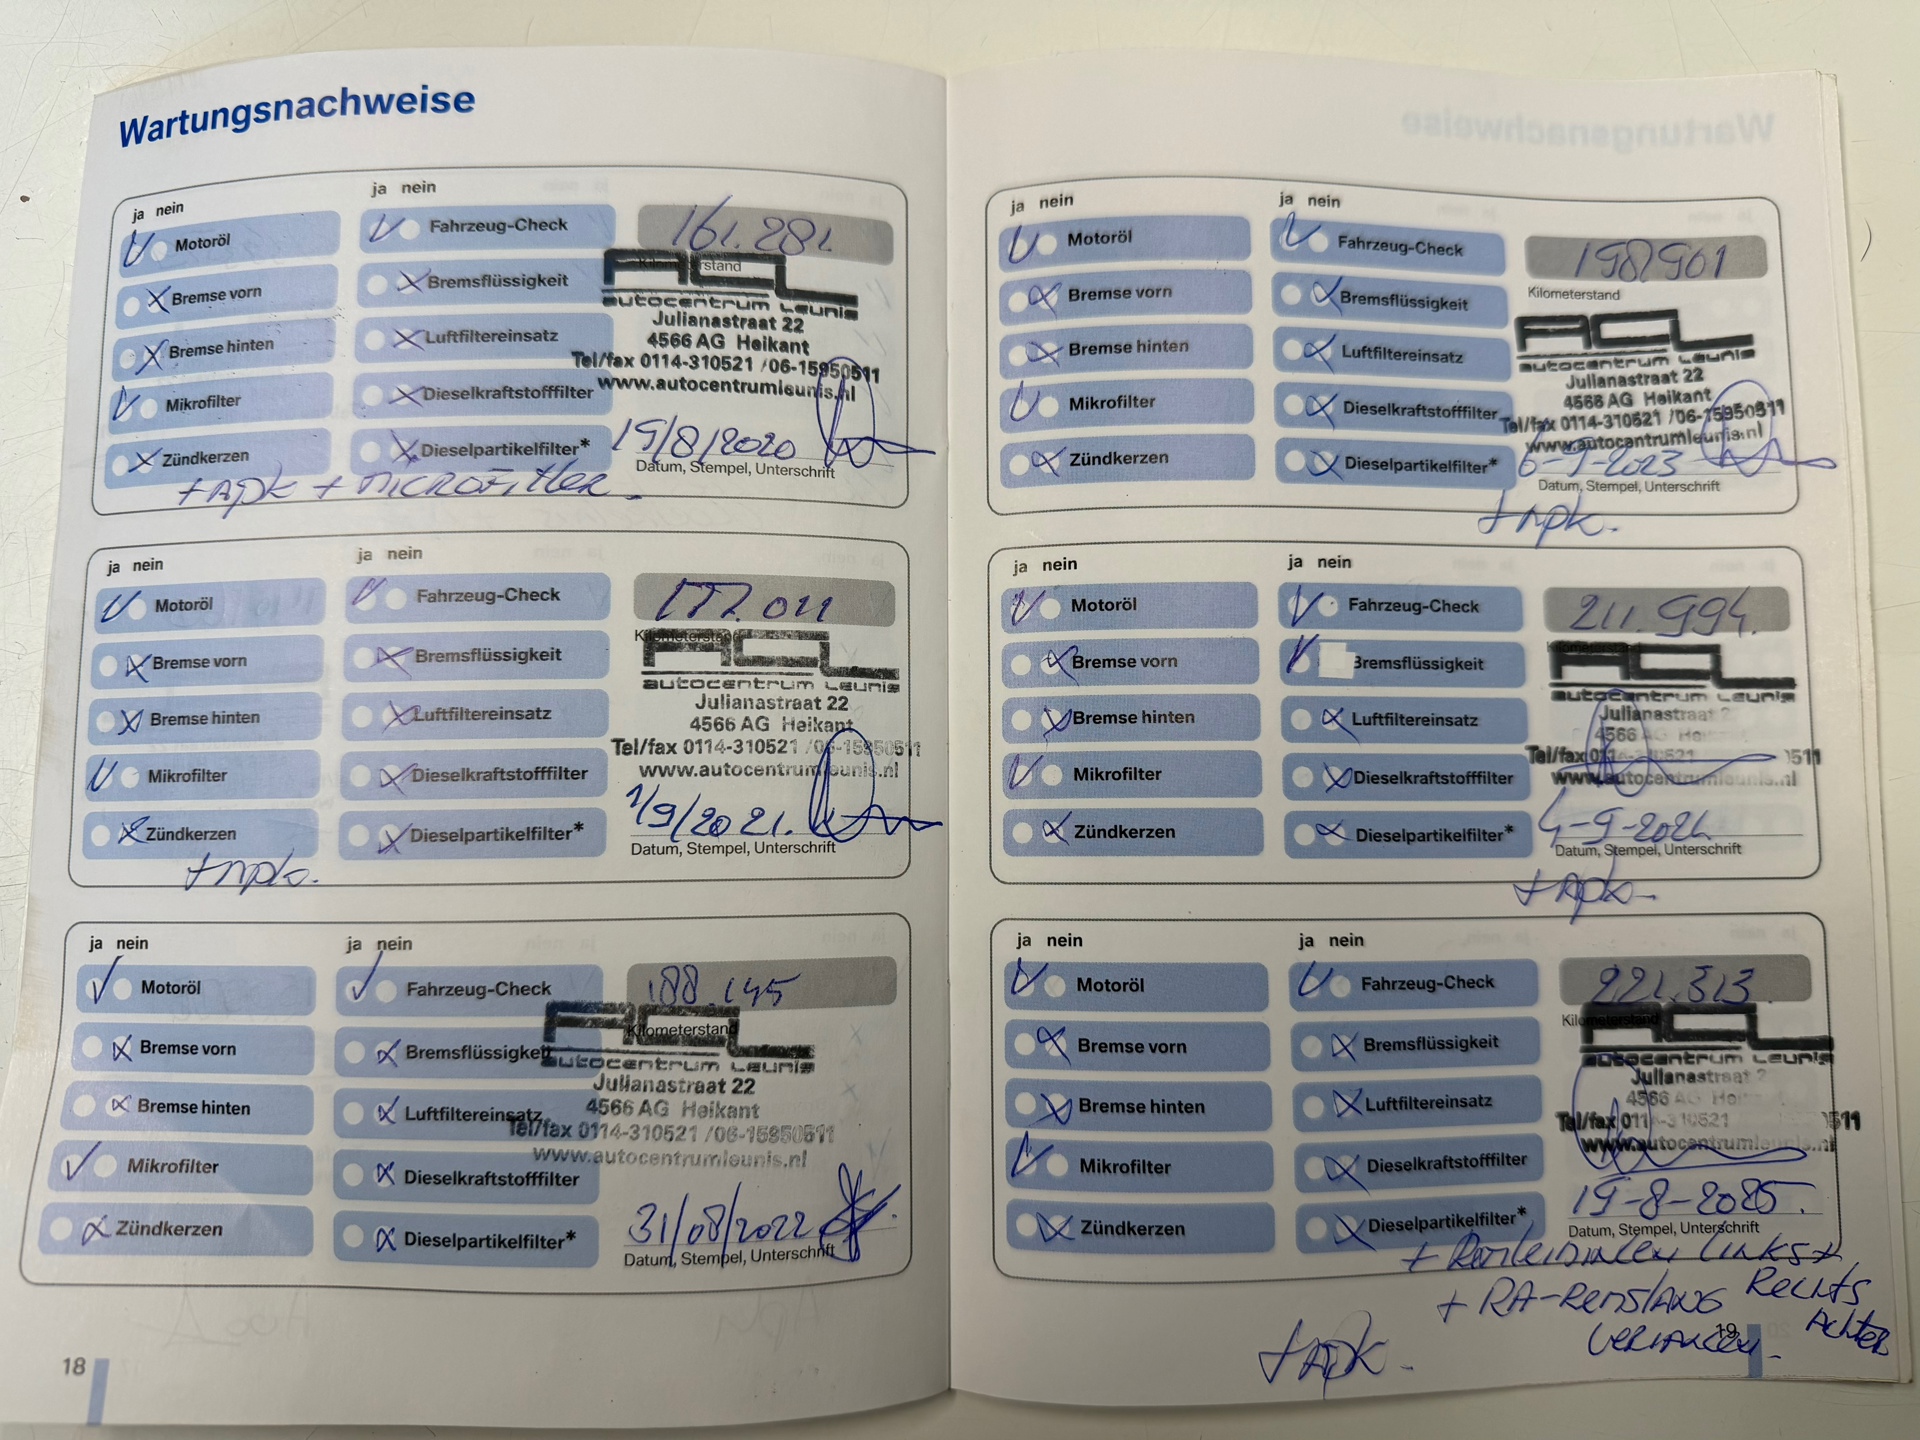 Wartungsnachweise
ja nein
ja nein
Motoröl
Fahrzeug-Check
161.281.
Kilometerstand
Bremse vorn
Bremsflüssigkeit
ACL
autocentrum Leunis
Bremse hinten
Luftfiltereinsatz
Julianastraat 22
4566 AG Heikant
Tel/fax 0114-310521 /06-15950511
www.autocentrumleunis.nl
Mikrofilter
Dieselkraftstofffilter
Zündkerzen
Dieselpartikelfilter*
19/8/2020
Datum, Stempel, Unterschrift
+ APK + MICROFILTER.
ja nein
ja nein
Motoröl
Fahrzeug-Check
177.011
Kilometerstand
Bremse vorn
Bremsflüssigkeit
ACL
autocentrum Leunis
Bremse hinten
Luftfiltereinsatz
Julianastraat 22
4566 AG Heikant
Tel/fax 0114-310521 /06-15950511
www.autocentrumleunis.nl
Mikrofilter
Dieselkraftstofffilter
Zündkerzen
Dieselpartikelfilter*
1/9/2021.
Datum, Stempel, Unterschrift
+ apk.
ja nein
ja nein
Motoröl
Fahrzeug-Check
188.145
Kilometerstand
Bremse vorn
Bremsflüssigkeit
ACL
autocentrum Leunis
Bremse hinten
Luftfiltereinsatz
Julianastraat 22
4566 AG Heikant
Tel/fax 0114-310521 /06-15950511
www.autocentrumleunis.nl
Mikrofilter
Dieselkraftstofffilter
Zündkerzen
Dieselpartikelfilter*
31/08/2022
Datum, Stempel, Unterschrift
18
ja nein
ja nein
Motoröl
Fahrzeug-Check
198901
Kilometerstand
Bremse vorn
Bremsflüssigkeit
ACL
autocentrum Leunis
Bremse hinten
Luftfiltereinsatz
Julianastraat 22
4566 AG Heikant
Tel/fax 0114-310521 /06-15950511
www.autocentrumleunis.nl
Mikrofilter
Dieselkraftstofffilter
Zündkerzen
Dieselpartikelfilter*
6-9-2023
Datum, Stempel, Unterschrift
+ apk.
ja nein
ja nein
Motoröl
Fahrzeug-Check
211.994.
Kilometerstand
Bremse vorn
Bremsflüssigkeit
ACL
autocentrum Leunis
Bremse hinten
Luftfiltereinsatz
Julianastraat 2
4566 AG
Tel/fax 0114-310521 511
www.autocentrumleunis.nl
Mikrofilter
Dieselkraftstofffilter
Zündkerzen
Dieselpartikelfilter*
4-9-2024
Datum, Stempel, Unterschrift
+ apk.
ja nein
ja nein
Motoröl
Fahrzeug-Check
221.313.
Kilometerstand
Bremse vorn
Bremsflüssigkeit
ACL
autocentrum Leunis
Bremse hinten
Luftfiltereinsatz
Julianastraat 2
4566 AG
Tel/fax 0114-310521 511
www.autocentrumleunis.nl
Mikrofilter
Dieselkraftstofffilter
Zündkerzen
Dieselpartikelfilter*
19-8-2025.
Datum, Stempel, Unterschrift
+ Remleidingen LINKS +
+ RA-Remslang Rechts
Achter
vervangen.
+ apk.
19